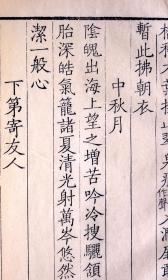 作聲
暫此拋朝衣
中秋月
陰魄出海上望之增苦吟冷搜驪頷
胎深皓氣籠諸夏清光射萬岑悠然
潔一般心
下第寄友人